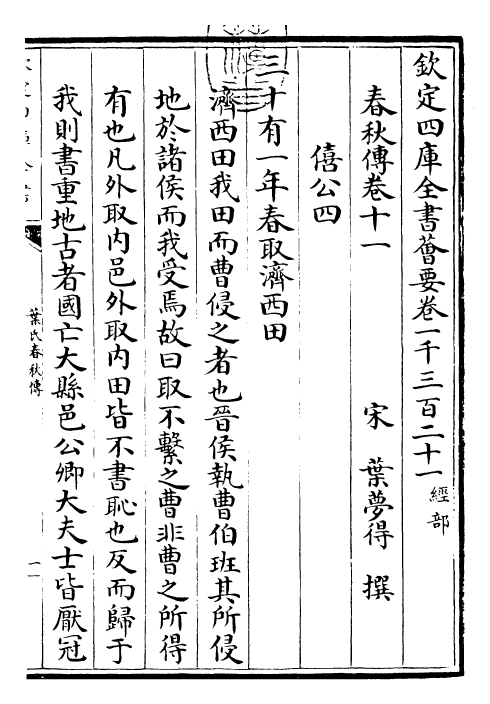 欽定四庫全書薈要卷一千三百二十一 經部
春秋傳卷十一 宋 葉夢得 撰
僖公四
三十有一年春取濟西田
濟西田我田而曹侵之者也晉侯執曹伯班其所侵
地於諸侯而我受焉故曰取不繫之曹非曹之所得
有也凡外取内邑外取内田皆不書恥也反而歸于
我則書重地古者國亡大縣邑公卿大夫士皆厭冠
葉氏春秋傳